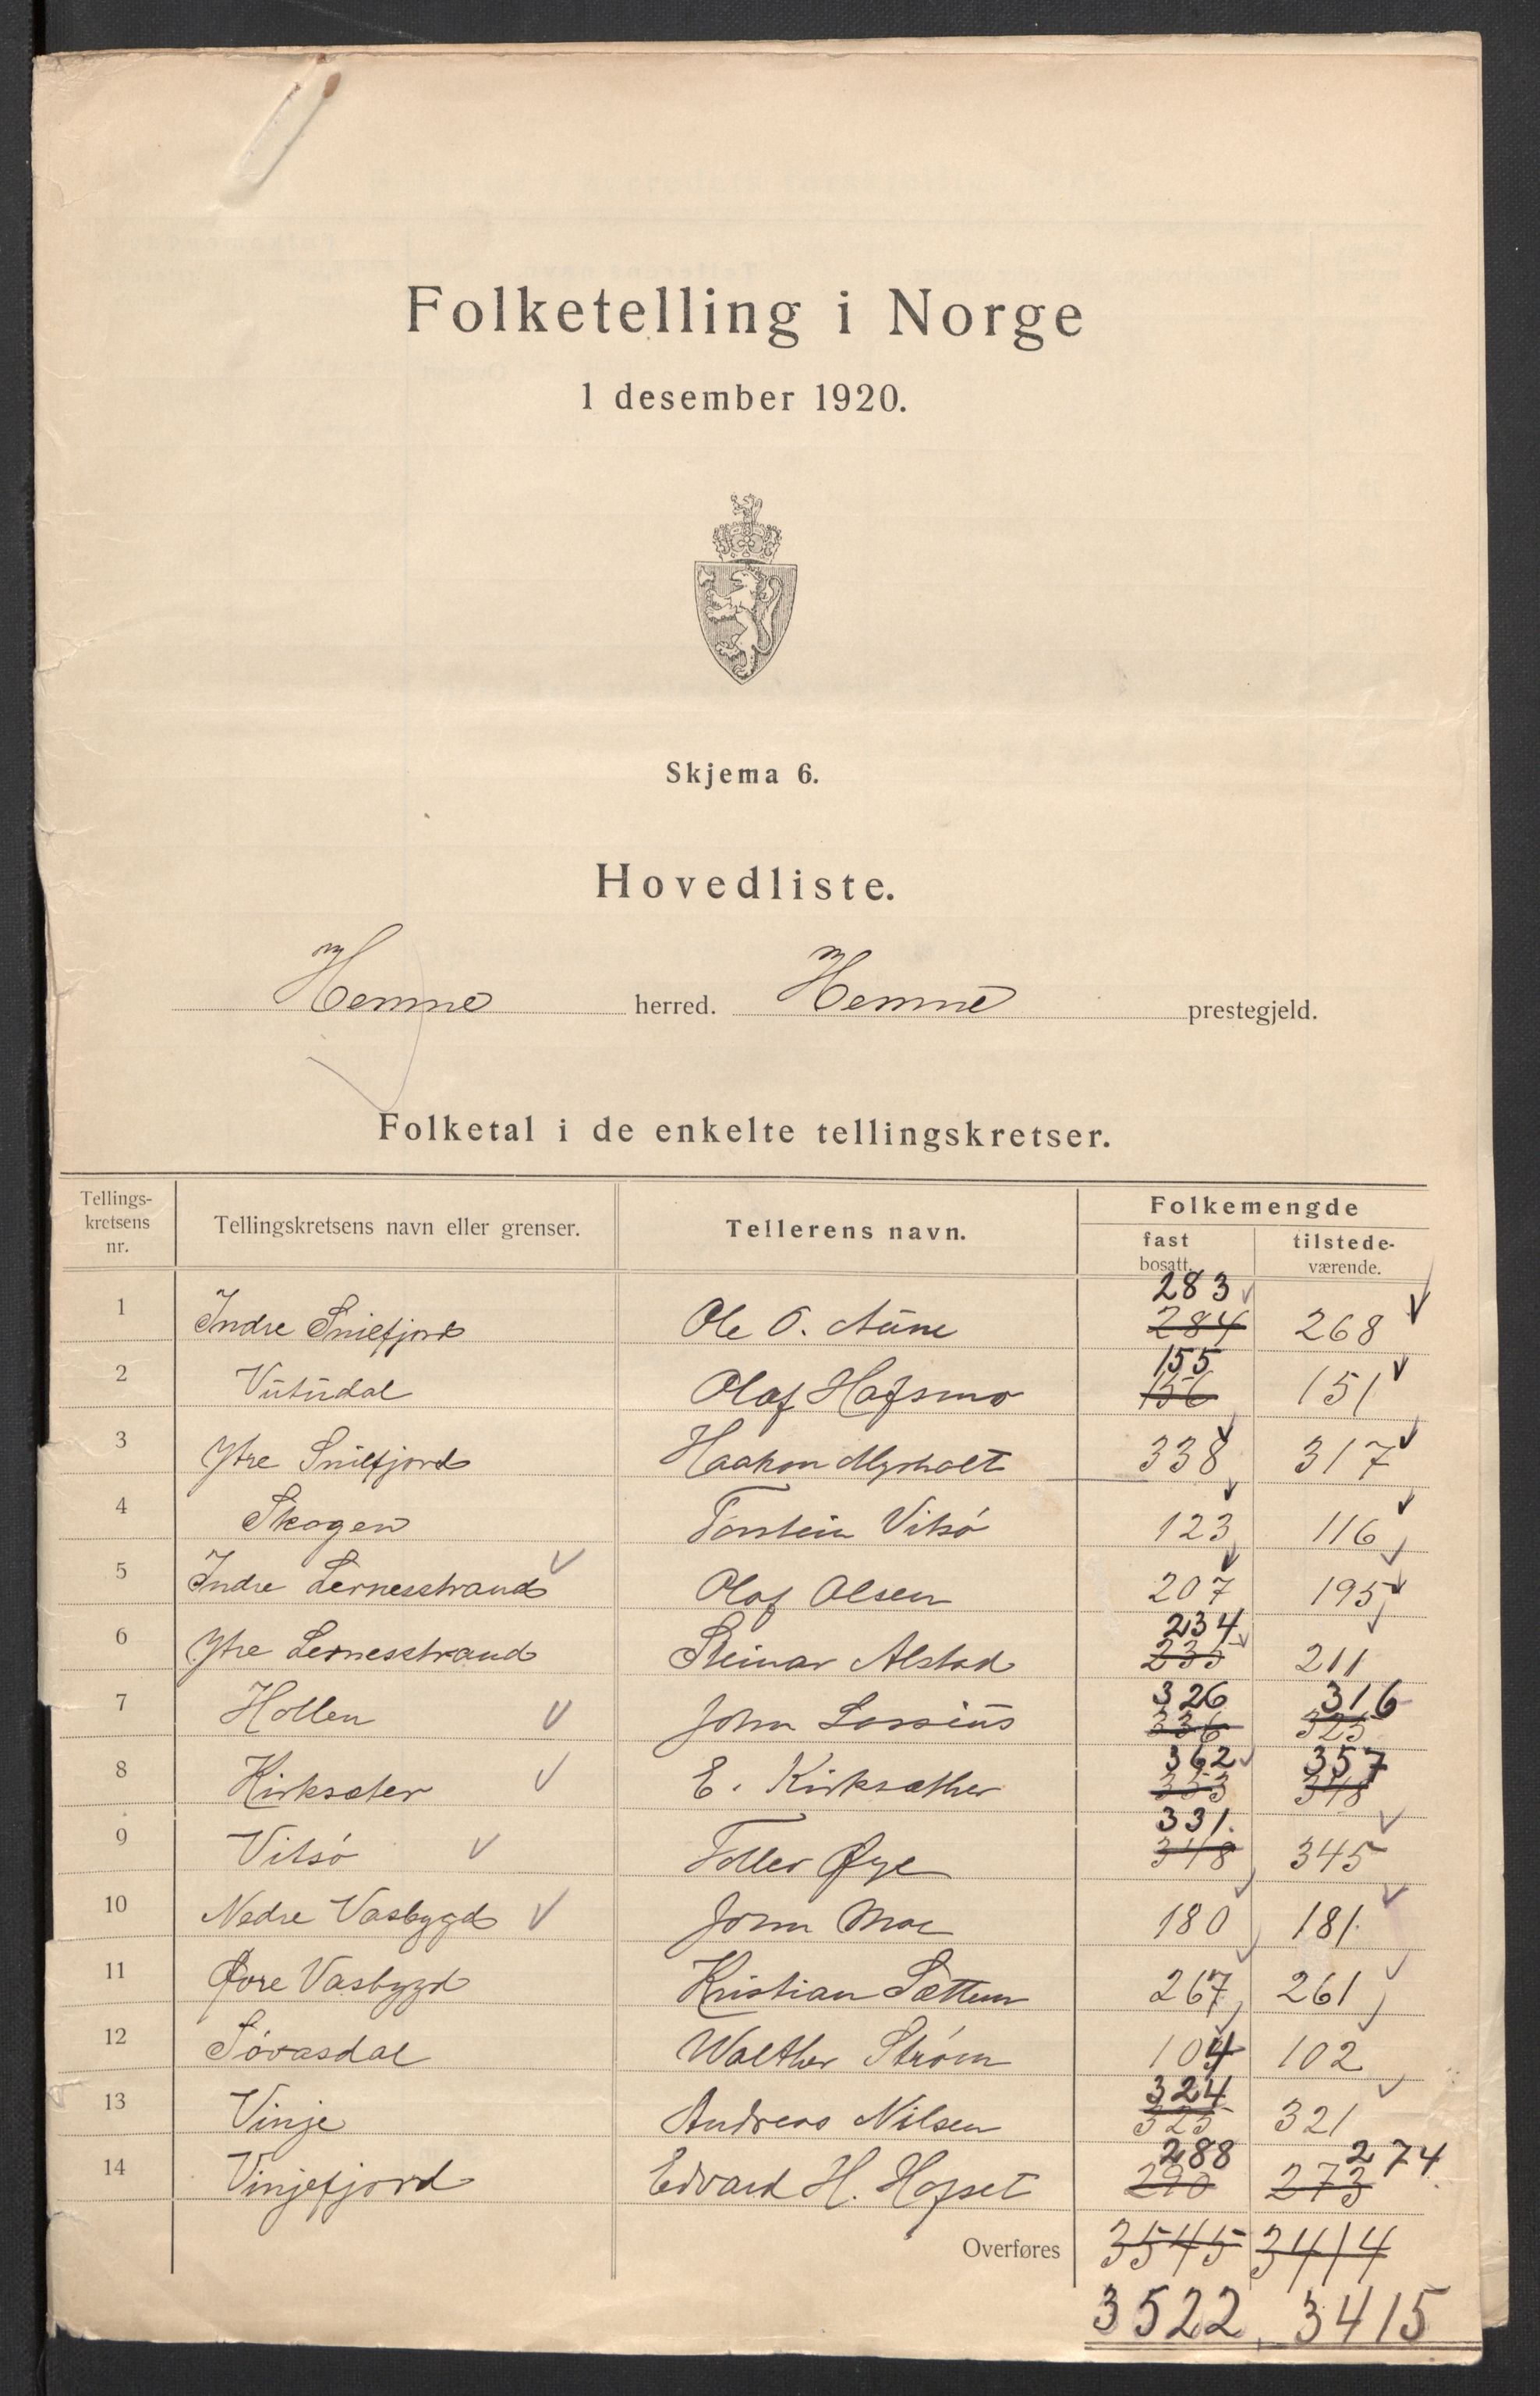 Folketelling i Norge
1 desember 1920.
Skjema 6.
Hovedliste.
Hemne herred. Hemne prestegjeld.
Folketal i de enkelte tellingskretser.
Tellings-kretsens nr. Tellingskretsens navn eller grenser. Tellerens navn. Folkemengde
fast bosatt. tilstede-værende.
283
1 Indre Snilfjord Ole O. Aune 284 268
155
2 Vutudal Olaf Hafsmo 156 151
3 Ytre Snilfjord Haakon Myrholt 338 317
4 Skogen Torstein Vitsø 123 116
5 Indre Lernesstrand Olaf Olsen 207 195
234
6 Ytre Lernesstrand Steinar Alstad 235 211
326 316
7 Hollen John Lossius 336 325
362 357
8 Kirksæter E. Kirksæther 353 348
331.
9 Vitsø Toller Øye 348 345
10 Nedre Vasbygd John Moe 180 181
11 Øvre Vasbygd Kristian Sættem 267 261
12 Søvasdal Walther Strøm 104 102
324
13 Vinje Andreas Nilsen 325 321
288 274
14 Vinjefjord Edvard H. Hofset 290 273
Overføres 3545 3414
3522 3415